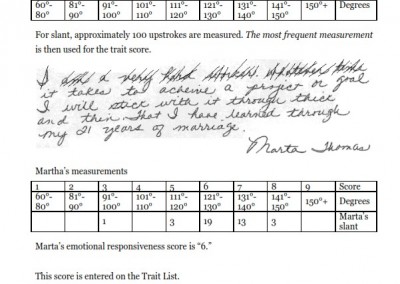 60°- 81°- 91°- 101°- 111°- 121°- 131°- 141°- 150°+ Degrees
80° 90° 100° 110° 120° 130° 140° 150°
For slant, approximately 100 upstrokes are measured. The most frequent measurement
is then used for the trait score.
I am a very hard worker. Whatever time
it takes to acheive a project or goal
I will stick with it through thick
and thin. That I have learned through
my 21 years of marriage.
Marta Thomas
Martha's measurements
1 2 3 4 5 6 7 8 9 Score
60°- 81°- 91°- 101°- 111°- 121°- 131°- 141°- 150°+ Degrees
80° 90° 100° 110° 120° 130° 140° 150°
1 3 19 13 3 Marta's
slant
Marta's emotional responsiveness score is "6."
This score is entered on the Trait List.